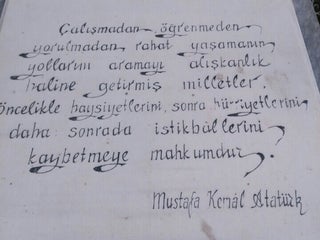 Çalışmadan öğrenmeden
yorulmadan rahat yaşamanın
yollarını aramayı alışkanlık
haline getirmiş milletler,
öncelikle haysiyetlerini, sonra hürriyetlerini
daha sonrada istikbâllerini
kaybetmeye mahkumdur.
Mustafa Kemâl Atatürk